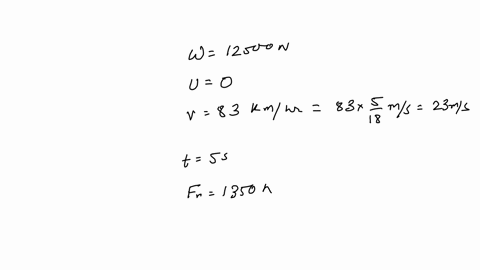 W = 12500 N
U = 0
v = 83 Km/hr = 83 × 5/18 m/s = 23 m/s
t = 5s
Fr = 1350 N